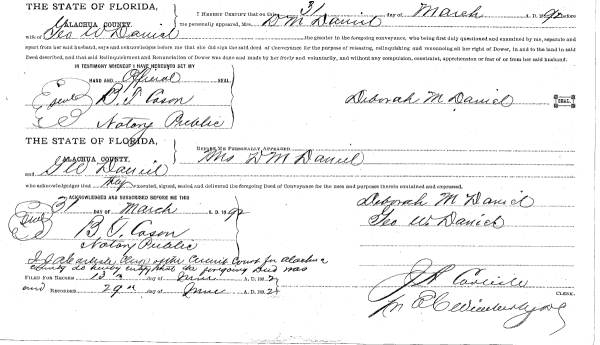 THE STATE OF FLORIDA,
ALACHUA COUNTY.
I HEREBY CERTIFY that on this 31 day of March A. D. 1892 before
me personally appeared, Mrs. D M Daniel
wife of Geo W Daniel the grantor in the foregoing conveyance, who being first duly questioned and examined by me, separate and
apart from her said husband, says and acknowledges before me that she did sign the said deed of Conveyance for the purpose of releasing, relinquishing and renouncing all her right of Dower, in and to the land in said
Deed described, and that said Relinquishment and Renunciation of Dower was done and made by her freely and voluntarily, and without any compulsion, constraint, apprehension or fear of or from her said husband.
IN TESTIMONY WHEREOF I HAVE HEREUNTO SET MY
HAND AND Official SEAL
B. T. Cason
Notary Public
Deborah M Daniel SEAL.
THE STATE OF FLORIDA,
ALACHUA COUNTY.
BEFORE ME PERSONALLY APPEARED
Mrs D M Daniel
and G W Daniel
who acknowledges that they executed, signed, sealed and delivered the foregoing Deed of Conveyance for the uses and purposes therein contained and expressed.
ACKNOWLEDGED AND SUBSCRIBED BEFORE ME THIS
31 DAY OF March A. D. 1892
B. T. Cason
Notary Public
Deborah M Daniel
Geo W Daniel
Clerk of the Circuit Court for Alachua
County do hereby certify that the foregoing Deed was
FILED FOR RECORD 13 day of June A. D. 1892
and RECORDED 29 day of June A. D. 1892
CLERK.